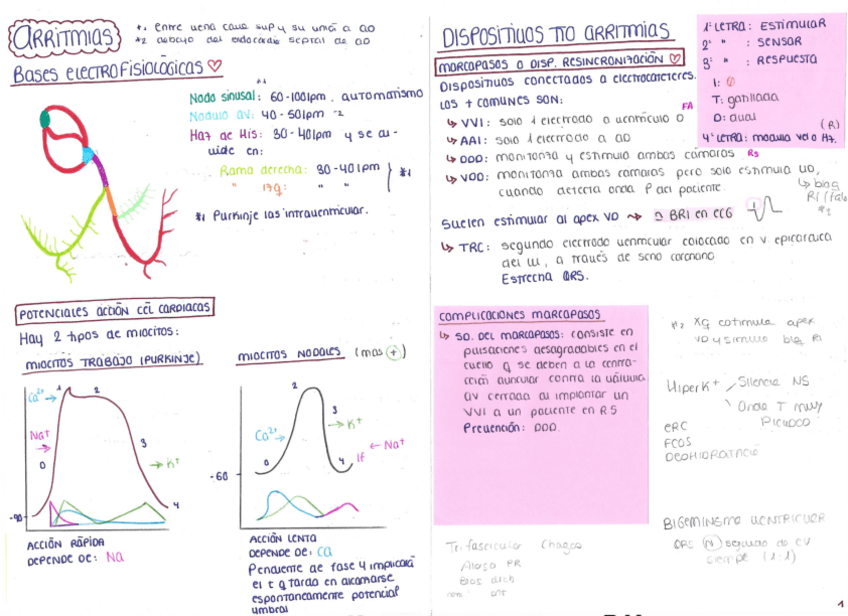 ARRITMIAS
*1 entre vena cava sup y su unió a AD
*2 debajo del endocardio septal de AD
BASES ELECTROFISIOLÓGICAS
*1
Nodo sinusal: 60-100lpm. automatismo
Nodulo AV: 40-50lpm *2
Haz de His: 30-40lpm y se di-
vide en:
Rama derecha: 30-40lpm
" izq: " "
*1
*1 Purkinje las intraventricular.
POTENCIALES ACCIÓN CÉL CARDIACAS
Hay 2 tipos de miocitos:
MIOCITOS TRABAJO (PURKINJE)
Ca2+
1
2
Na+
0
3
K+
4
-90
ACCIÓN RÁPIDA
DEPENDE DE: Na
MIOCITOS NODALES (mas +)
2
3
K+
Ca2+
Na+
0
4
If
-60
ACCIÓN LENTA
DEPENDE DE: Ca
Pendiente de fase 4 implicará
el t q tarda en alcanzarse
espontaneamente potencial
umbral
DISPOSITIVOS TTO ARRITMIAS
MARCAPASOS O DISP. RESINCRONIZACIÓN
Dispositivos conectados a electrocatéteres.
Los + comunes son:
VVI: solo 1 electrodo a ventrículo D
FA
AAI: solo 1 electrodo a AD
DDD: monitoriza y estimula ambas cámaras
RS
VDD: monitoriza ambas cámaras pero solo estimula VD,
cuando detecta onda P del paciente.
1ª LETRA: ESTIMULAR
2ª " : SENSAR
3ª " : RESPUESTA
I:
T: gatillada
D: dual
(R)
4ª LETRA: modula vel o Hz.
Suelen estimular al apex VD
BRI en ECG
bloq
*1
TRC: segundo electrodo ventricular colocado en v epicárdica
del VI, a través de seno coronario
Estrecha QRS.
COMPLICACIONES MARCAPASOS
SD. DEL MARCAPASOS: consiste en
pulsaciones desagradables en el
cuello q se deben a la contra-
cción auricular contra la válvula
AV cerrada al implantar un
VVI a un paciente en RS
Prevención: DDD.
xq estimula apex
VD y simula bloq
HiperK+
Silencia NS
Onda T muy
picuda
ERC
FCOS
BIGEMINISMO VENTRICULAR
QRS N seguido de EV
siempre (1:1)
Trifascicular Chagas
Alarga PR
Bloq dch
1